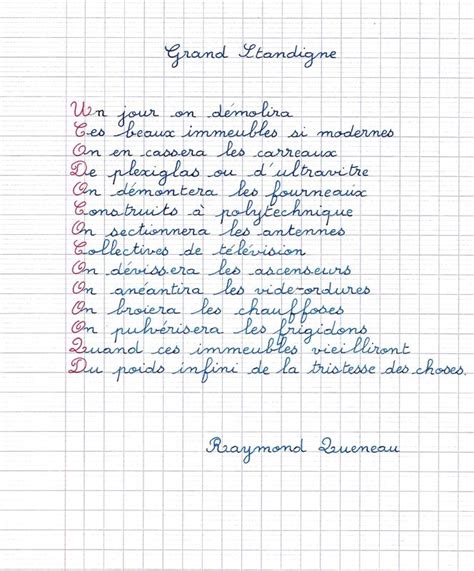 Grand Standigne
Un jour on démolira
Ces beaux immeubles si modernes
On en cassera les carreaux
De plexiglas ou d'ultravitre
On démontera les fourneaux
Construits à polytechnique
On sectionnera les antennes
Collectives de télévision
On dévissera les ascenseurs
On anéantira les vide-ordures
On broiera les chauffoses
On pulvérisera les frigidons
Quand ces immeubles vieilliront
Du poids infini de la tristesse des choses.
Raymond Queneau